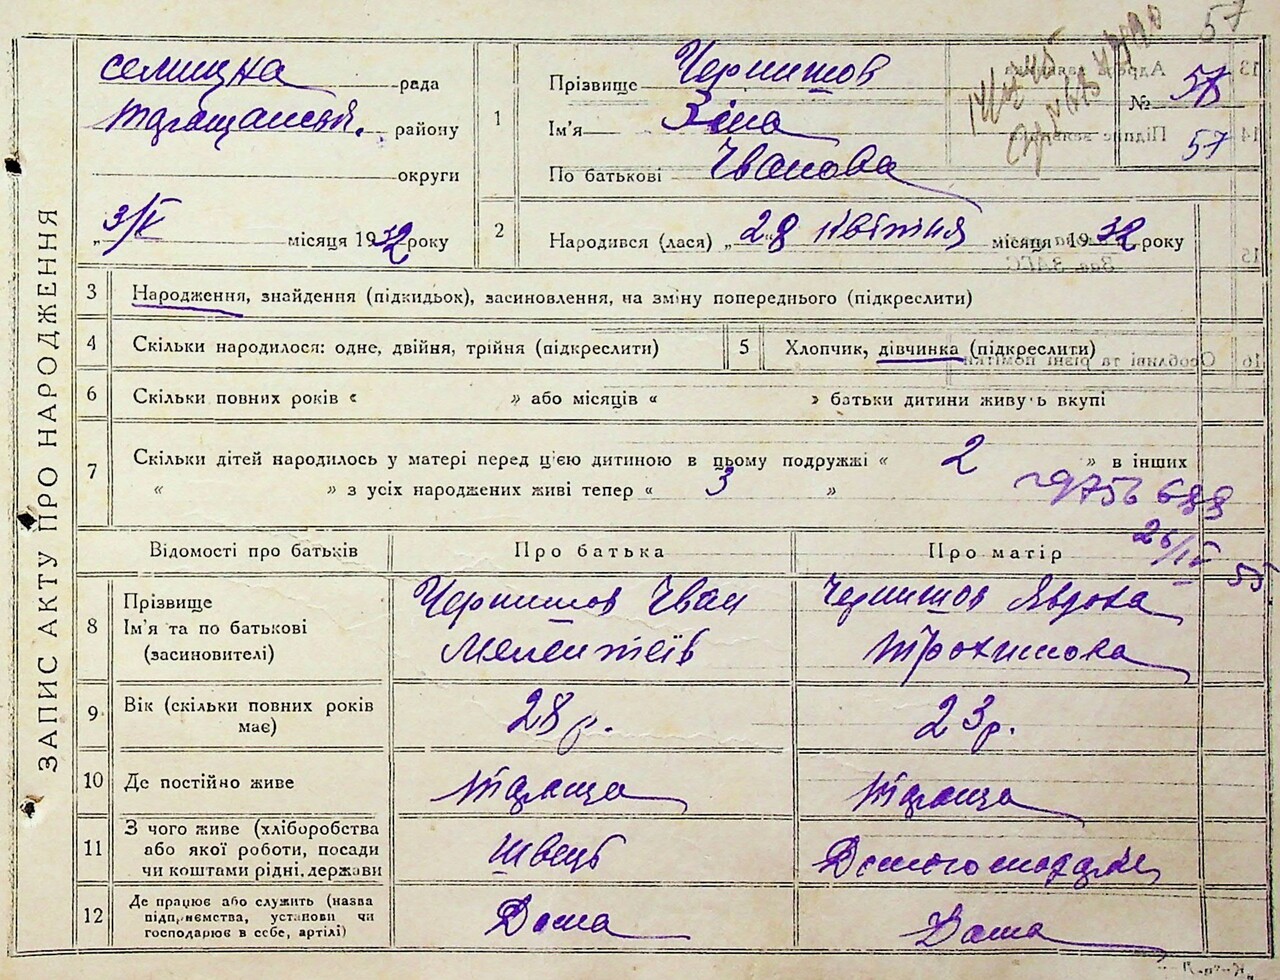 57
ЗАПИС АКТУ ПРО НАРОДЖЕННЯ
селищна рада
району
округи
„3/V місяця 1932 року
1
Прізвище Чернишов
Ім'я Зіна
По батькові Іванова
№ 57
57
2
Народився (лася) „28 квітня місяця 1932 року
3
Народження, знайдення (підкидьок), засиновлення, на зміну попереднього (підкреслити)
4
Скільки народилося: одне, двійня, трійня (підкреслити)
5
Хлопчик, дівчинка (підкреслити)
6
Скільки повних років « » або місяців « » батьки дитини живуть вкупі
7
Скільки дітей народилось у матері перед ц'єю дитиною в цьому подружжі « 2 » в інших
« » з усіх народжених живі тепер « 3 »
26/IV 55
Відомості про батьків
Про батька
Про матір
8
Прізвище
Ім'я та по батькові
(засиновителі)
Чернишов Іван
Мелентіїв
Чернишов Явдоха
Трохимова
9
Вік (скільки повних років
має)
28 р.
23 р.
10
Де постійно живе
11
З чого живе (хліборобства
або якої роботи, посади
чи коштами рідні, держави
Швець
12
Де працює або служить (назва
підприємства, установи чи
господарює в себе, артілі)
Дома
Дома